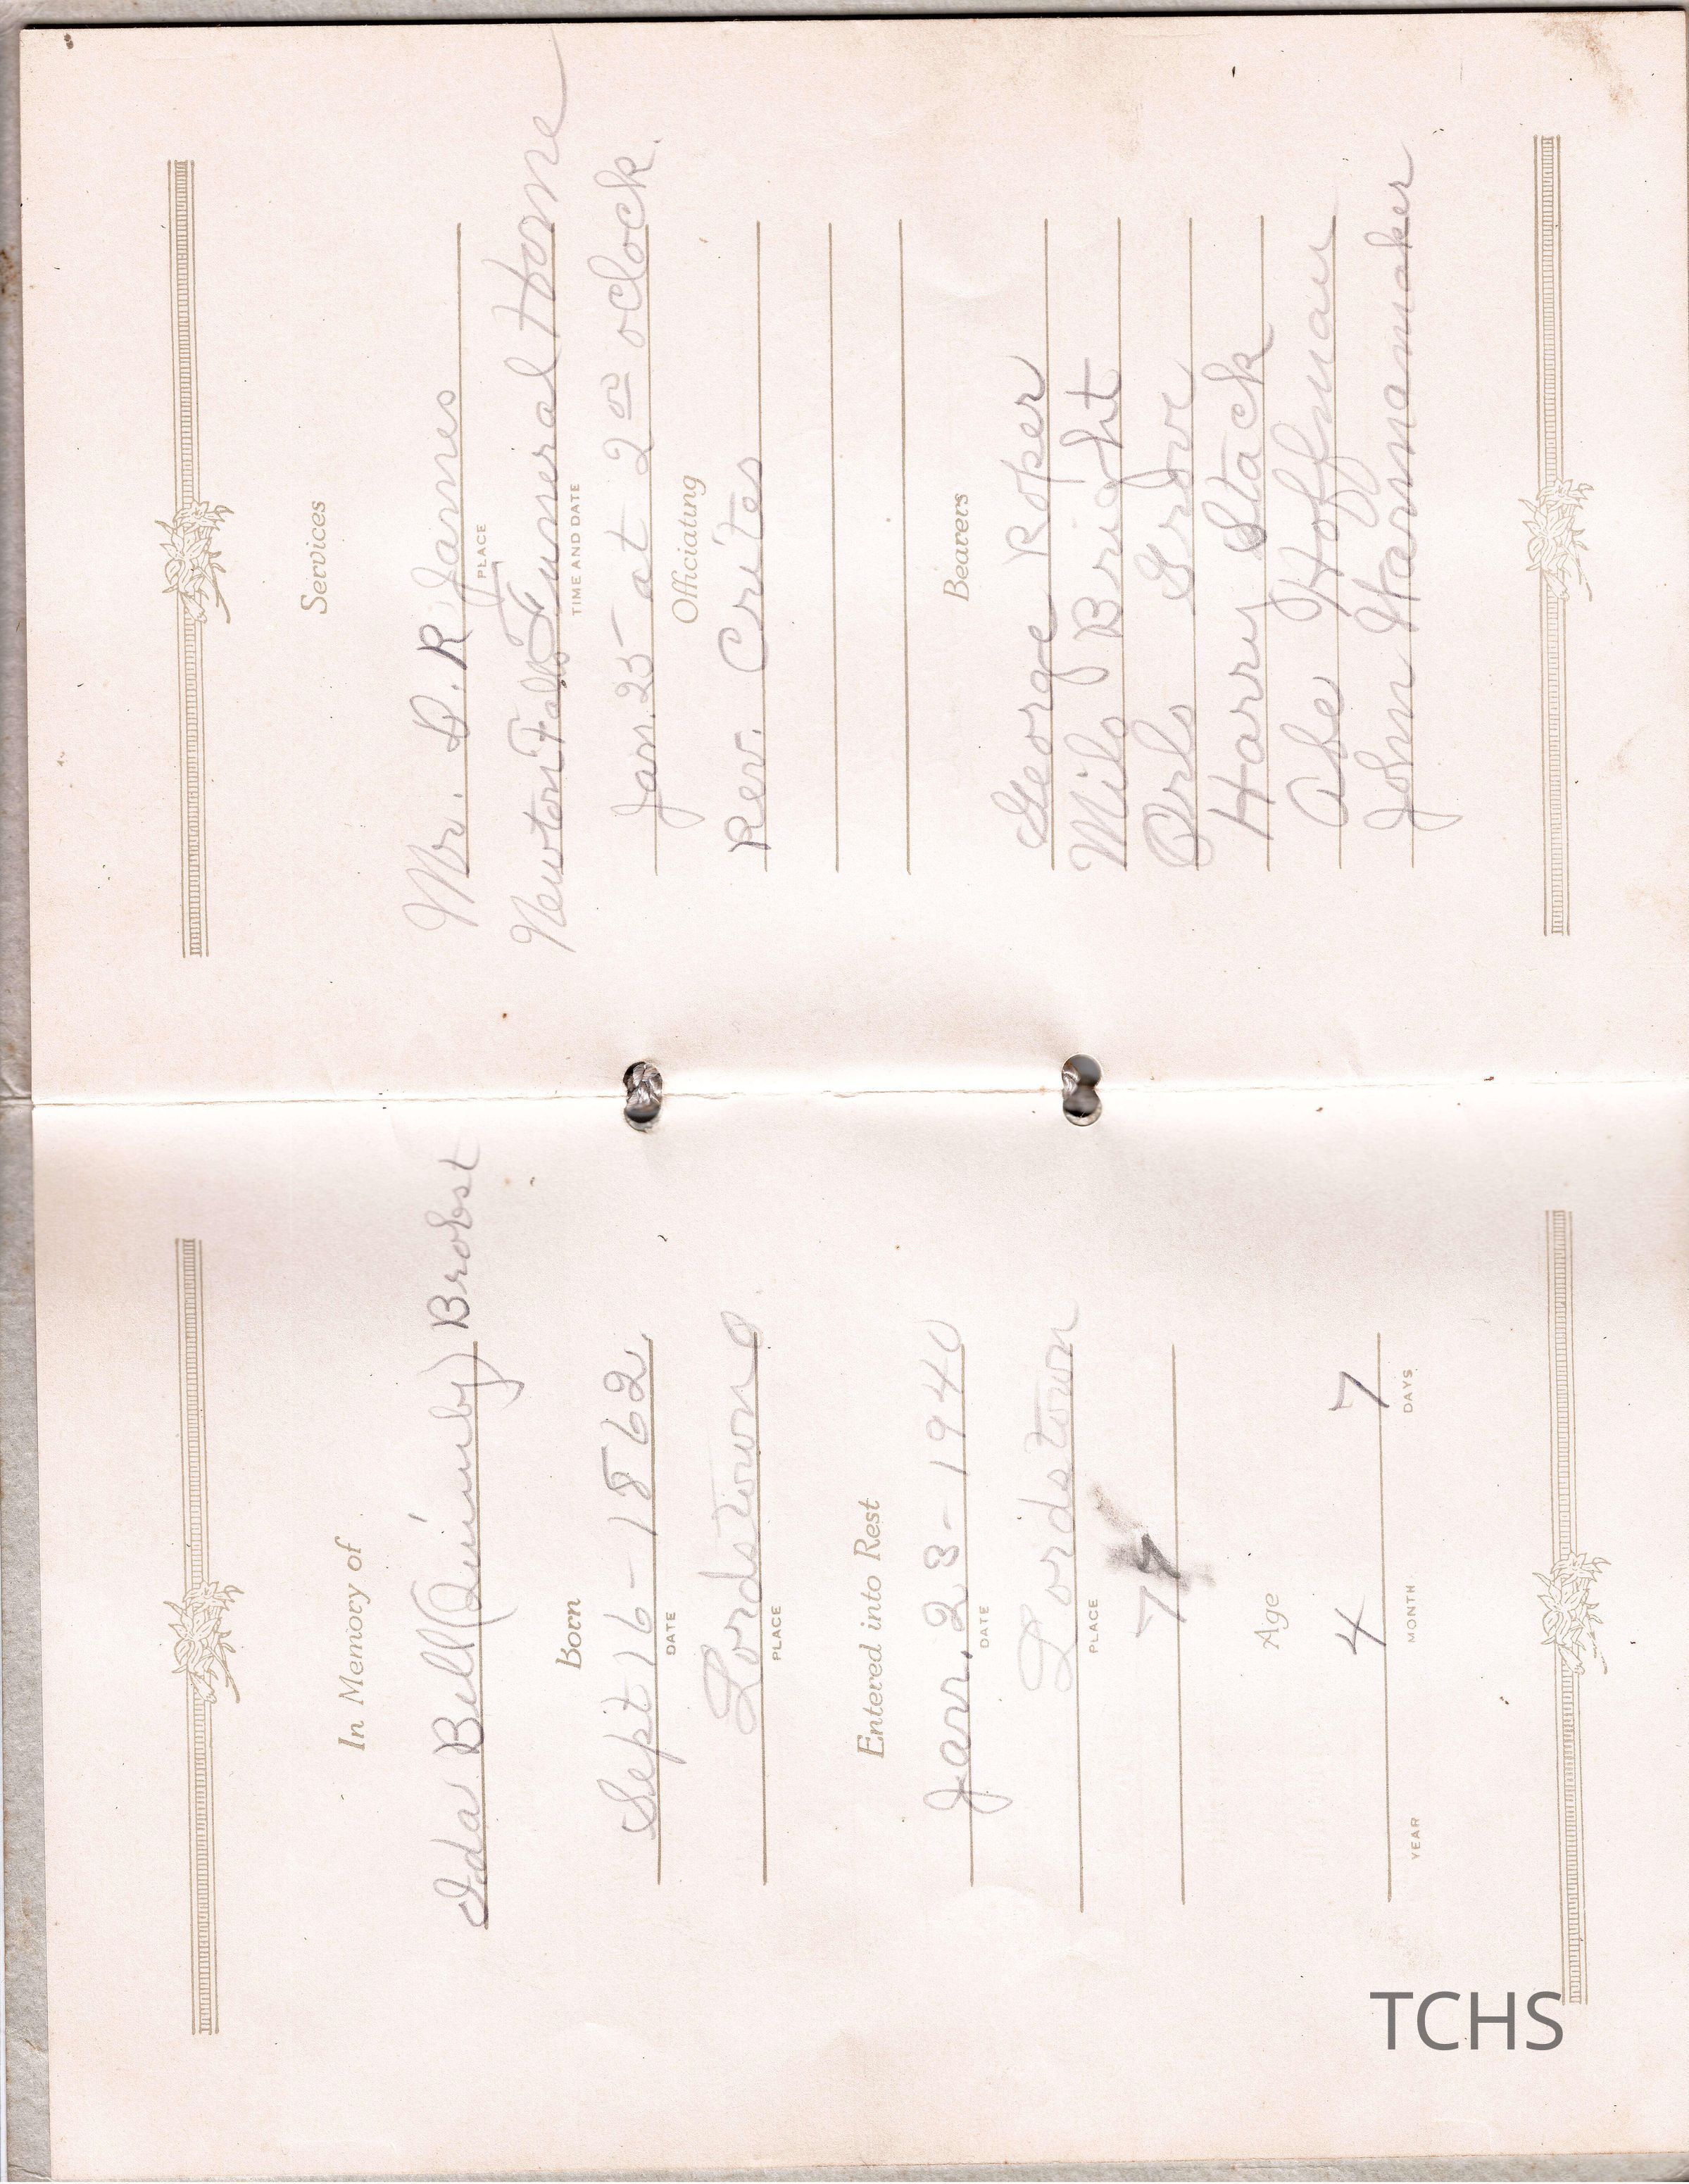 In Memory of
Ida Bell (Quimby) Brobst
Born
Sept 16 - 1862
DATE
Lordstown O
PLACE
Entered into Rest
Jan. 23 - 1940
DATE
Lordstown
PLACE
Age
4 7
YEAR MONTH DAYS
Services
Mr. D. R James
PLACE
Newton Falls Funeral Home
TIME AND DATE
Jan. 25 - at 2 00 oclock.
Officiating
Rev. Crites
Bearers
George Roper
Milo Bright
Orlo Grove
Harry Stack
Abe Hoffman
John Wannamaker
TCHS